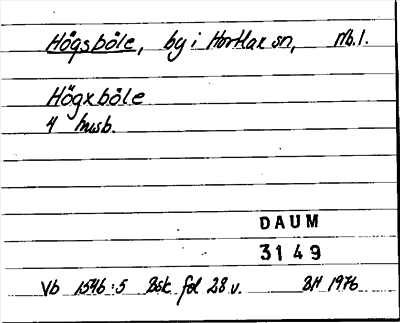 Högsböle, by i Hortlax sn, nb.l.
Högxböle
4 husb.
DAUM
3149
Vb 1546:5 Bsk fol 28 v. BH 1976